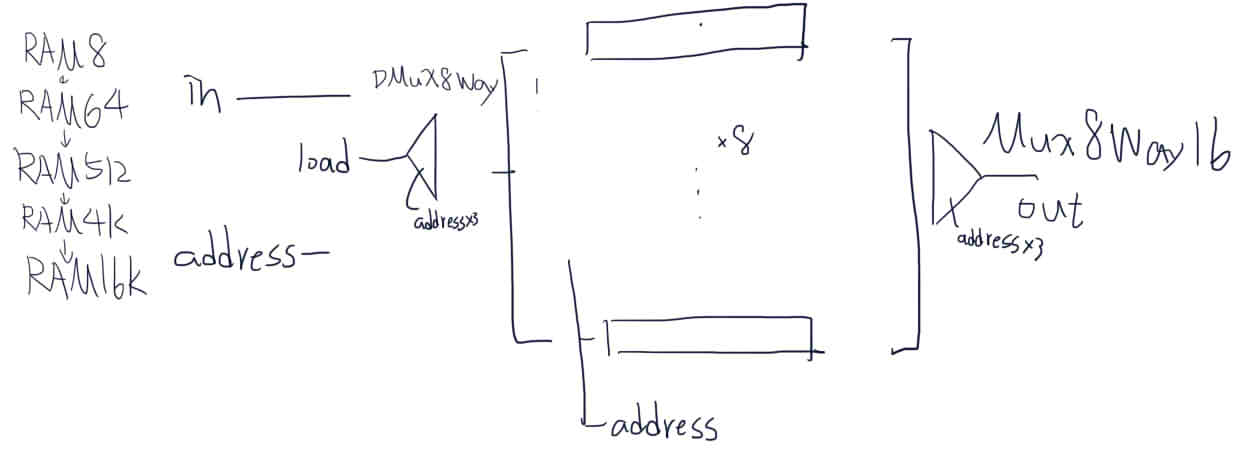 RAM8
RAM64
RAM512
RAM4k
RAM16k
in
load
address
DMux8Way
address×3
×8
address
Mux8Way16
out
address×3